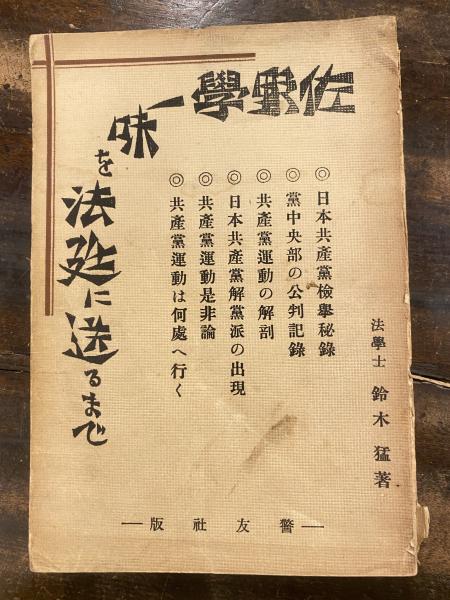 佐野學一味
を法廷に送るまで
◎日本共產黨檢擧秘錄
◎黨中央部の公判記錄
◎共產黨運動の解剖
◎日本共產黨解黨派の出現
◎共產黨運動是非論
◎共產黨運動は何處へ行く
法學士 鈴木猛著
—警友社版—